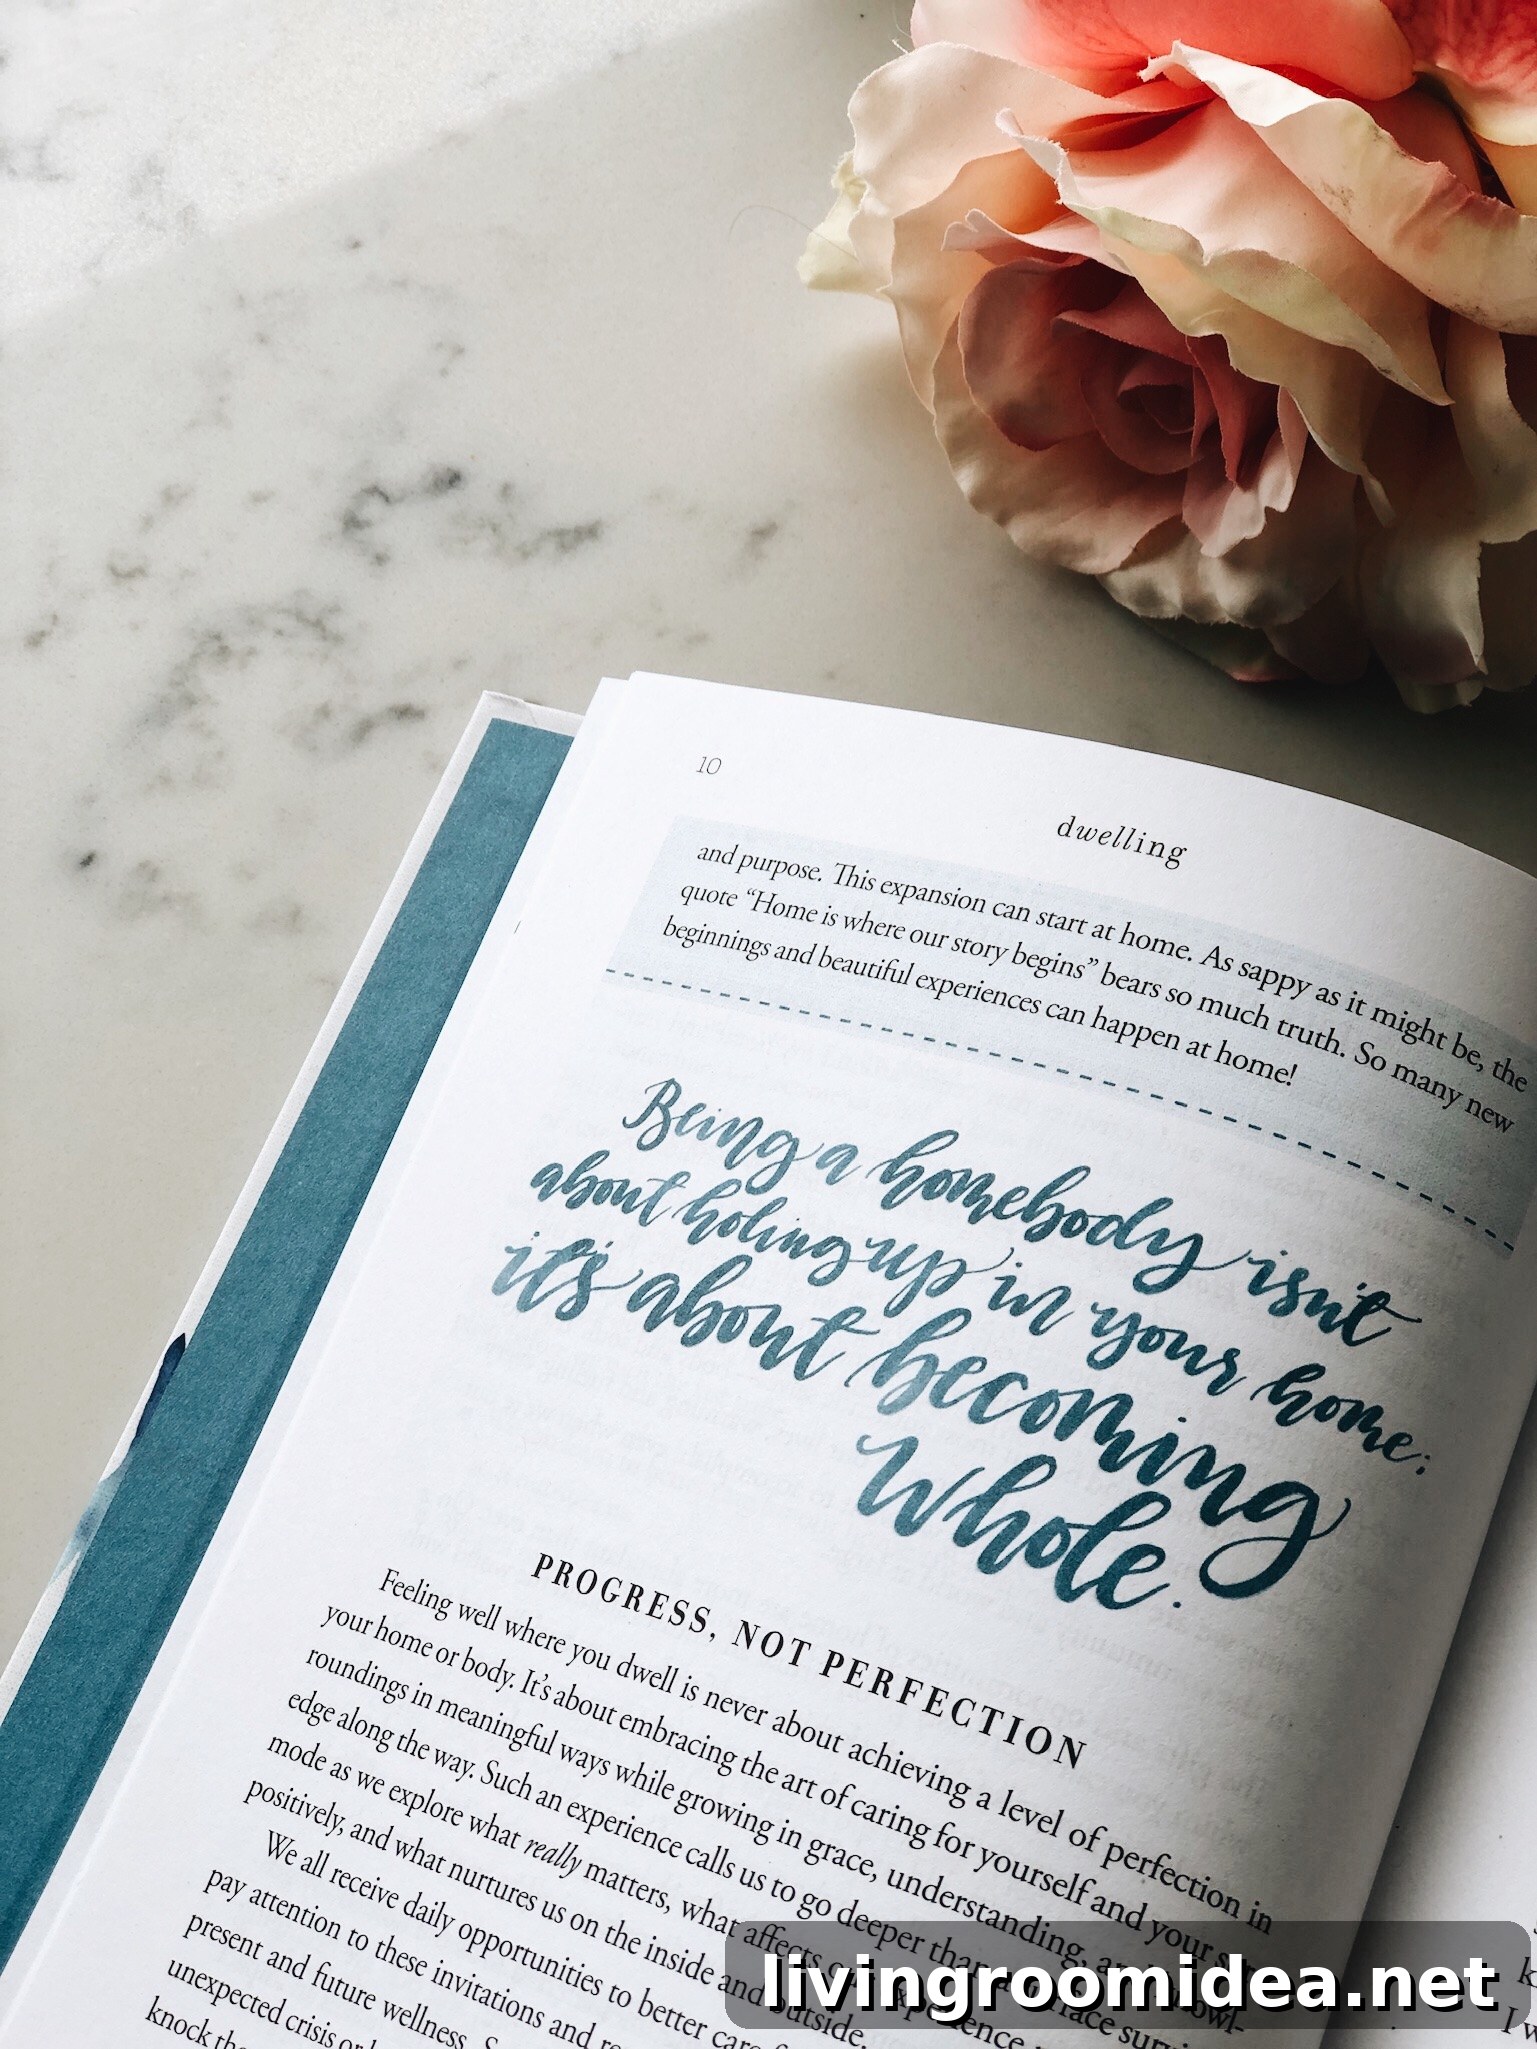 10
dwelling
and purpose. This expansion can start at home. As sappy as it might be, the
quote “Home is where our story begins” bears so much truth. So many new
beginnings and beautiful experiences can happen at home!
Being a homebody isn't
about holing up in your home:
it's about becoming
whole.
PROGRESS, NOT PERFECTION
Feeling well where you dwell is never about achieving a level of perfection in
your home or body. It's about embracing the art of caring for yourself and your sur-
roundings in meaningful ways while growing in grace, understanding, and knowl-
edge along the way. Such an experience calls us to go deeper than surface
mode as we explore what really matters, what affects our experience
positively, and what nurtures us on the inside and outside.
We all receive daily opportunities to better care
pay attention to these invitations and
present and future wellness.
unexpected crisis or
knock
I
livingroomidea.net